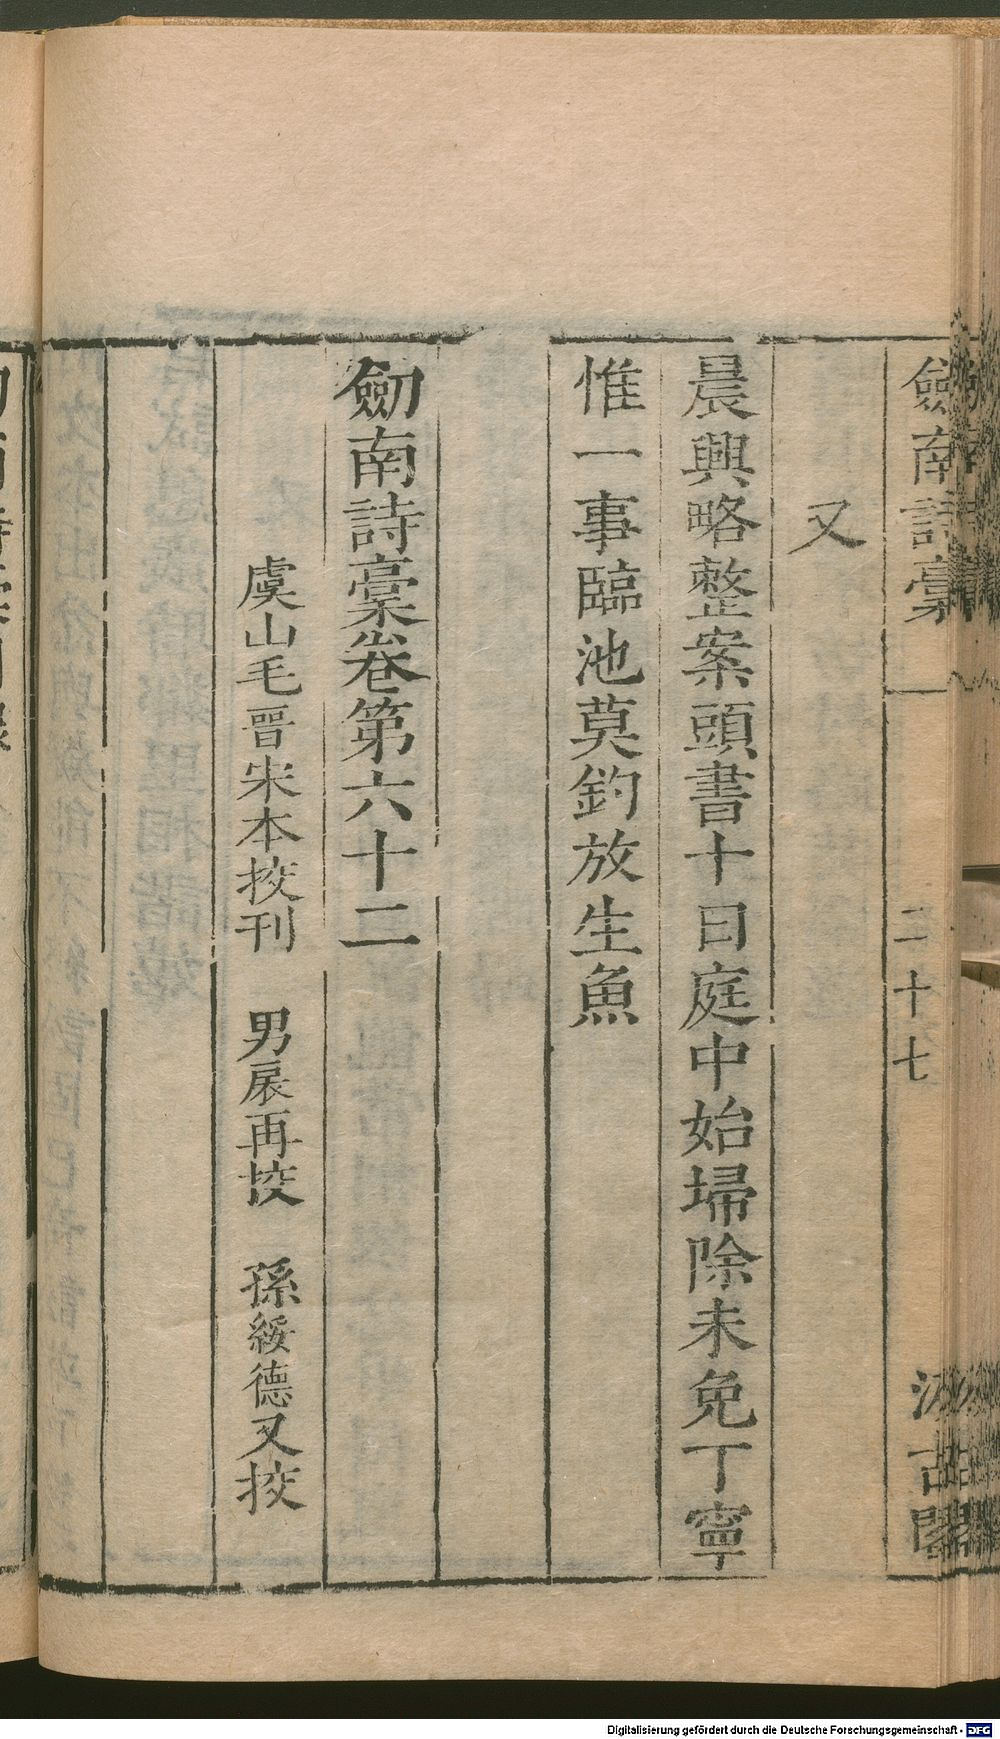 劎南詩稾
二十七
汲古閣
又
晨興略整案頭書十日庭中始埽除未免丁寧
惟一事臨池莫釣放生魚
劎南詩稾卷第六十二
虞山毛晋宋本挍刊 男扆再挍 孫綏德又挍
Digitalisierung gefördert durch die Deutsche Forschungsgemeinschaft - DFG